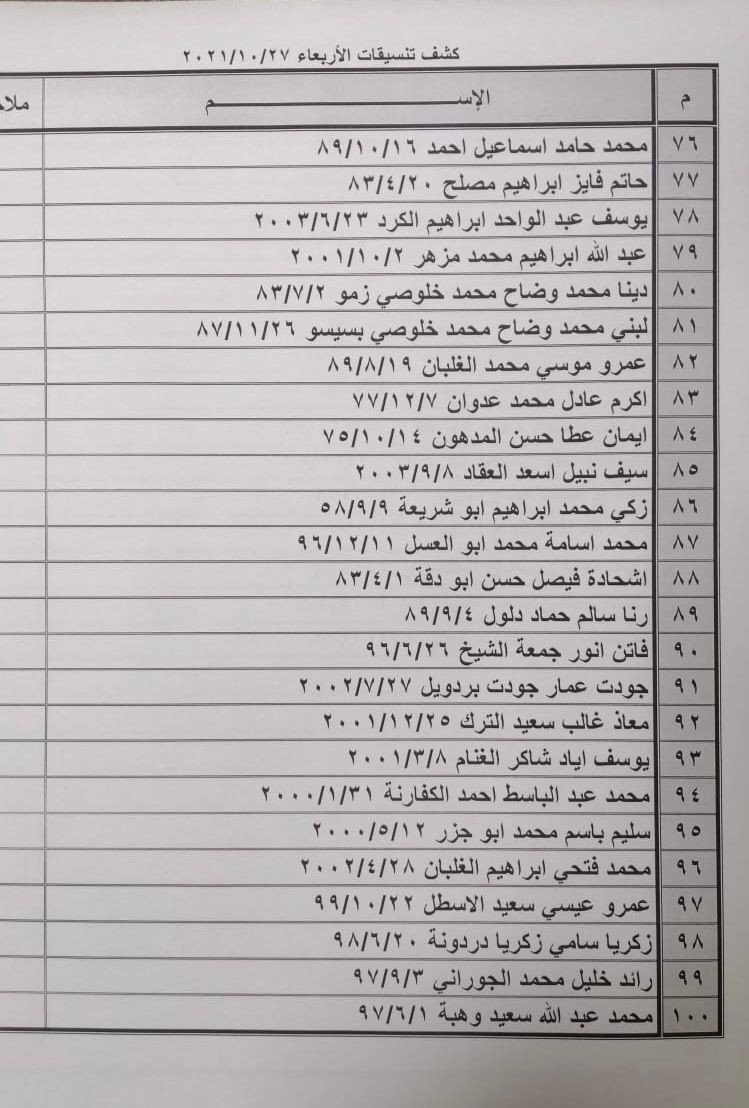 كشف تنسيقات الأربعاء ٢٠٢١/١٠/٢٧
م الإســـــــــــــــــــــم ملا
٧٦ محمد حامد اسماعيل احمد ٨٩/١٠/١٦
٧٧ حاتم فايز ابراهيم مصلح ٨٣/٤/٢٠
٧٨ يوسف عبد الواحد ابراهيم الكرد ٢٠٠٣/٦/٢٣
٧٩ عبد الله ابراهيم محمد مزهر ٢٠٠١/١٠/٢
٨٠ دينا محمد وضاح محمد خلوصي زمو ٨٣/٧/٢
٨١ لبني محمد وضاح محمد خلوصي بسيسو ٨٧/١١/٢٦
٨٢ عمرو موسي محمد الغلبان ٨٩/٨/١٩
٨٣ اكرم عادل محمد عدوان ٧٧/١٢/٧
٨٤ ايمان عطا حسن المدهون ٧٥/١٠/١٤
٨٥ سيف نبيل اسعد العقاد ٢٠٠٣/٩/٨
٨٦ زكي محمد ابراهيم ابو شريعة ٥٨/٩/٩
٨٧ محمد اسامة محمد ابو العسل ٩٦/١٢/١١
٨٨ اشحادة فيصل حسن ابو دقة ٨٣/٤/١
٨٩ رنا سالم حماد دلول ٨٩/٩/٤
٩٠ فاتن انور جمعة الشيخ ٩٦/٦/٢٦
٩١ جودت عمار جودت بردويل ٢٠٠٢/٧/٢٧
٩٢ معاذ غالب سعيد الترك ٢٠٠١/١٢/٢٥
٩٣ يوسف اياد شاكر الغنام ٢٠٠١/٣/٨
٩٤ محمد عبد الباسط احمد الكفارنة ٢٠٠٠/١/٣١
٩٥ سليم باسم محمد ابو جزر ٢٠٠٠/٥/١٢
٩٦ محمد فتحي ابراهيم الغلبان ٢٠٠٢/٤/٢٨
٩٧ عمرو عيسي سعيد الاسطل ٩٩/١٠/٢٢
٩٨ زكريا سامي زكريا دردونة ٩٨/٦/٢٠
٩٩ رائد خليل محمد الجوراني ٩٧/٩/٣
١٠٠ محمد عبد الله سعيد وهبة ٩٧/٦/١